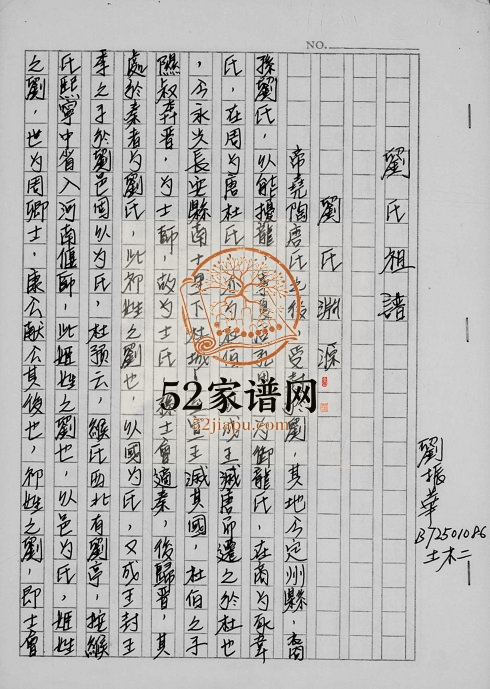 NO.
劉氏祖譜
劉氏淵源
帝堯陶唐氏之後，受封劉，其地今定州縣，裔
孫劉氏，以能擾龍，事夏為御龍氏，在商為豕韋
氏，在周為唐杜氏，亦為杜伯，成王滅唐而遷之於杜也
，今永久長安縣南下杜城，宣王滅其國，杜伯之子
隰叔奔晉，為士師，故為士氏，孫士會適秦，後歸晉，其
處於秦者為劉氏，此祁姓之劉也，以國為氏，又成王封王
季之子於劉邑因以為氏，杜預云，緱氏西北有劉亭，按緱
氏熙寧中省入河南偃師，此姬姓之劉也，以邑為氏，姬姓
之劉，也為周卿士，康公獻公其後也，祁姓之劉，即士會
劉振華
B72501086
土木二
52家谱网
52jiapu.com